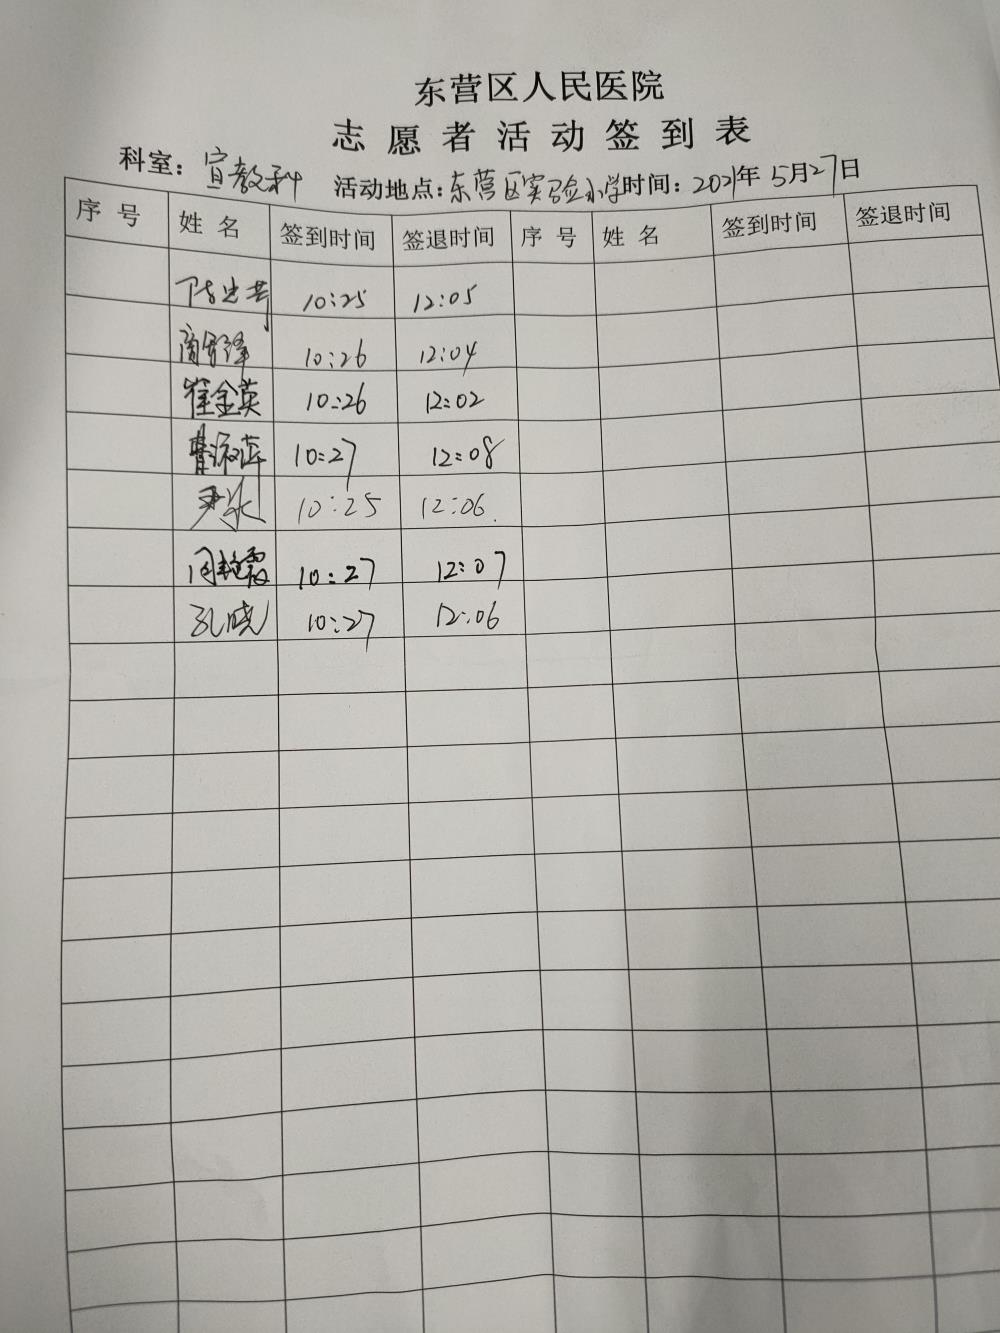 东营区人民医院
志愿者活动签到表
科室：宣教科 活动地点：东营区实验小学 时间：2021年5月27日
序号 姓名 签到时间 签退时间 序号 姓名 签到时间 签退时间
10:25 12:05
10:26 12:04
崔金英 10:26 12:02
10:27 12:08
10:25 12:06
10:27 12:07
孔晓 10:27 12:06